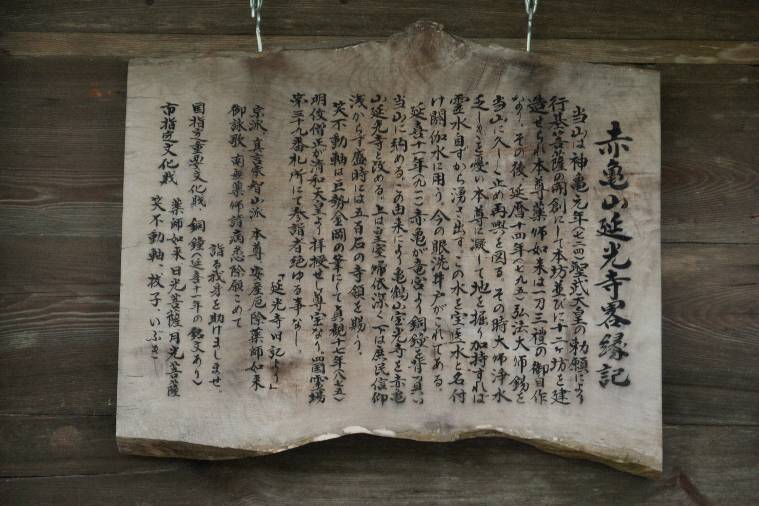 赤亀山延光寺畧縁記
当山は神亀元年(七二四)聖武天皇の勅願により
行基菩薩の開創にして本坊並びに十二ヶ坊を建
造せられ本尊薬師如来は一刀三禮の御自作
なり。その後延暦十四年(七九五)弘法大師錫を
当山に久しく止め再興を図る。その時大師浄水
乏しきを憂い本尊に凝して地を掘り加持すれば
霊水自ずから湧き出す。この水を宝医水と名付
け閼伽水に用う。今の眼洗井戸がこれである。
延喜十一年(九一一)赤亀が竜宮より銅鐘を背負い
当山に納める。この由来により亀鶴山宝光寺を赤亀
山延光寺と改める。上は皇室帰依深く下は庶民信仰
浅からず盛時には五百石の寺領を賜う。
笑不動軸は巨勢金岡の筆にして貞観十七年(八七五)
明俊僧正が清和天皇より拝授せし尊宝なり。四国霊場
第三十九番札所にて参詣者絶ゆる事なし。
「延光寺旧記より」
宗派 真言宗智山派 本尊 安産厄除薬師如来
御詠歌 南無薬師諸病悉除願こめて
詣る我身を助けましませ。
国指定重要文化戝、銅鐘(延喜十一年の銘文あり)
市指定文化戝 薬師如来 日光菩薩 月光菩薩
笑不動軸、抜子